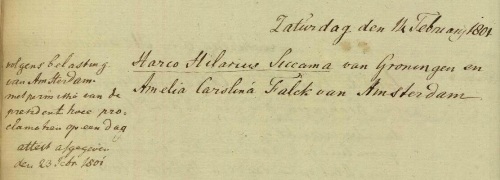 Zaturdag den 14 February 1801
volgens belasting
van Amsterdam
met permissie van de
president twee pro-
clamatien op een dag
attest afgegeven
den 23 Febr. 1801
Harco Hilarius Siccama van Groningen en
Amelia Carolina Falck van Amsterdam